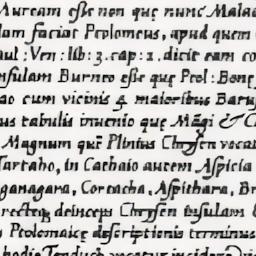 Auream esse non quę nunc Malac
lam faciat Ptolomeus, apud quem
aul: Ven: lib: 3. cap: 2. dicit eam co
nsulam Burneo esse quę Ptol: Bonę
ao cum vicinis & maioribus Barus
us tabulis inuenio quę Māgi & C
Magnum quē Plinius Chrysen vocat
Tartaho, in Cathaio autem Aspicia
ganagara, Cortacha, Aspithara, Br
recteq deinceps Chrysen insulam
Ptolomaicę descriptionis terminus
hodie vocatur